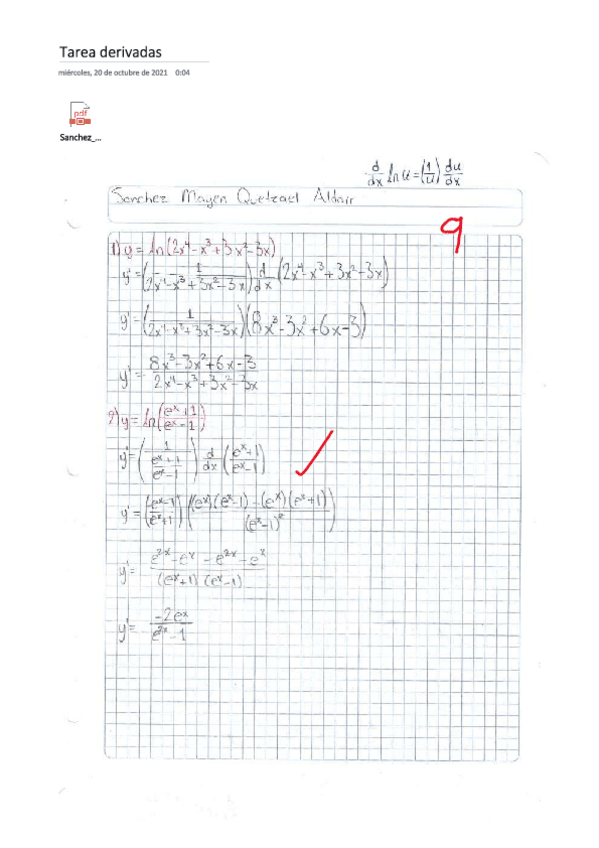 Tarea derivadas
miércoles, 20 de octubre de 2021 0:04
pdf
Sanchez_...
d/dx ln u = (1/u) du/dx
Sanchez Mayen Quetzael Aldair
9
1) y = ln(2x⁴-x³+3x²-3x)
y' = (1/(2x⁴-x³+3x²-3x)) d/dx (2x⁴-x³+3x²-3x)
y' = (1/(2x⁴-x³+3x²-3x)) (8x³-3x²+6x-3)
y' = (8x³-3x²+6x-3)/(2x⁴-x³+3x²-3x)
2) y = ln((eˣ+1)/(eˣ-1))
y' = (1/((eˣ+1)/(eˣ-1))) d/dx ((eˣ+1)/(eˣ-1))
y' = ((eˣ-1)/(eˣ+1)) (((eˣ)(eˣ-1)-(eˣ)(eˣ+1))/(eˣ-1)²)
y' = (e²ˣ-eˣ-e²ˣ-eˣ)/((eˣ+1)(eˣ-1))
y' = (-2eˣ)/(e²ˣ-1)